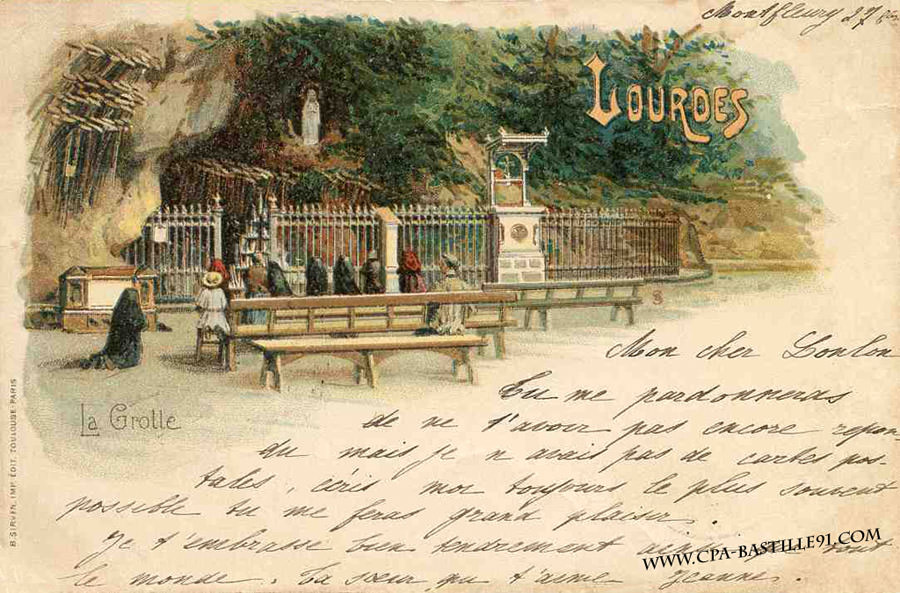 Montfleury 27
LOURDES
Mon cher Loulou
Tu me pardonneras
de ne t'avoir pas encore repon-
du mais je n avais pas de cartes pos-
tales, écris moi toujours le plus souvent
possible tu me feras grand plaisir.
Je t'embrasse bien tendrement ainsi que tout
le monde. Ta sœur qui t'aime Jeanne.
La Grotte
B. SIRVEN, IMP. ÉDIT. TOULOUSE-PARIS
WWW.CPA-BASTILLE91.COM